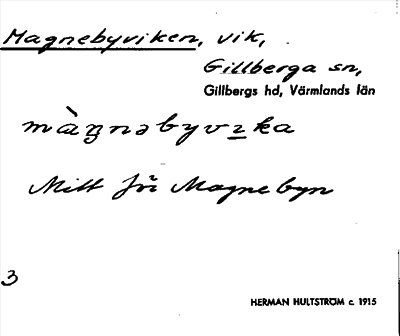 Magnebyviken, vik,
Gillberga sn,
Gillbergs hd, Värmlands län
màŋnəbyvɪka
Mitt för Magnebyn
3
HERMAN HULTSTRÖM c. 1915